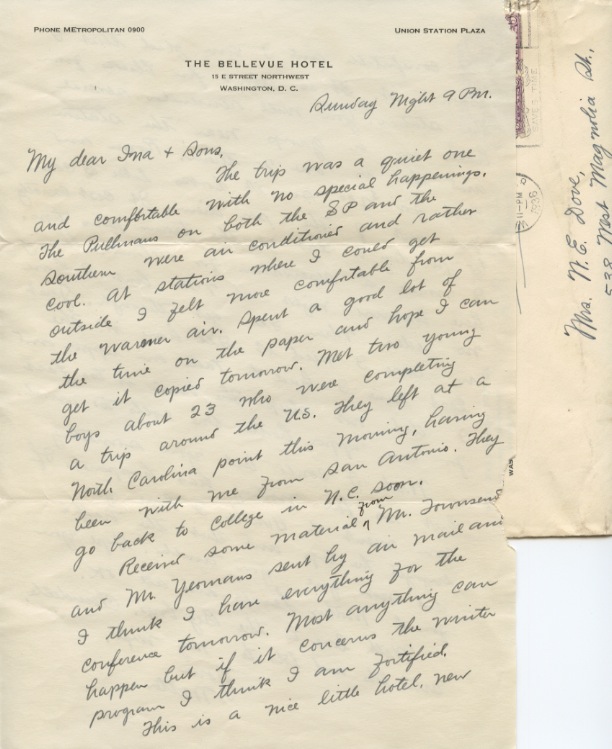 PHONE METROPOLITAN 0900
UNION STATION PLAZA
THE BELLEVUE HOTEL
15 E STREET NORTHWEST
WASHINGTON, D. C.
Sunday Night 9 PM.
My dear Ina + Sons,
The trip was a quiet one
and comfortable with no special happenings.
The Pullmans on both the SP and the
Southern were air conditioned and rather
cool. At stations where I could get
outside I felt more comfortable from
the warmer air. Spent a good lot of
the time on the paper and hope I can
get it copied tomorrow. Met two young
boys about 23 who were completing
a trip around the U.S. They left at a
North Carolina point this morning, having
been with me from San Antonio. They
go back to college in N.C. soon.
Received some material from Mr. Townsend
and Mr. Yeomans sent by air mail and
I think I have everything for the
conference tomorrow. Most anything can
happen but if it concerns the winter
program I think I am fortified.
This is a nice little hotel, new
Mrs. N. E. Dove,
538 West Magnolia Av,
11-PM